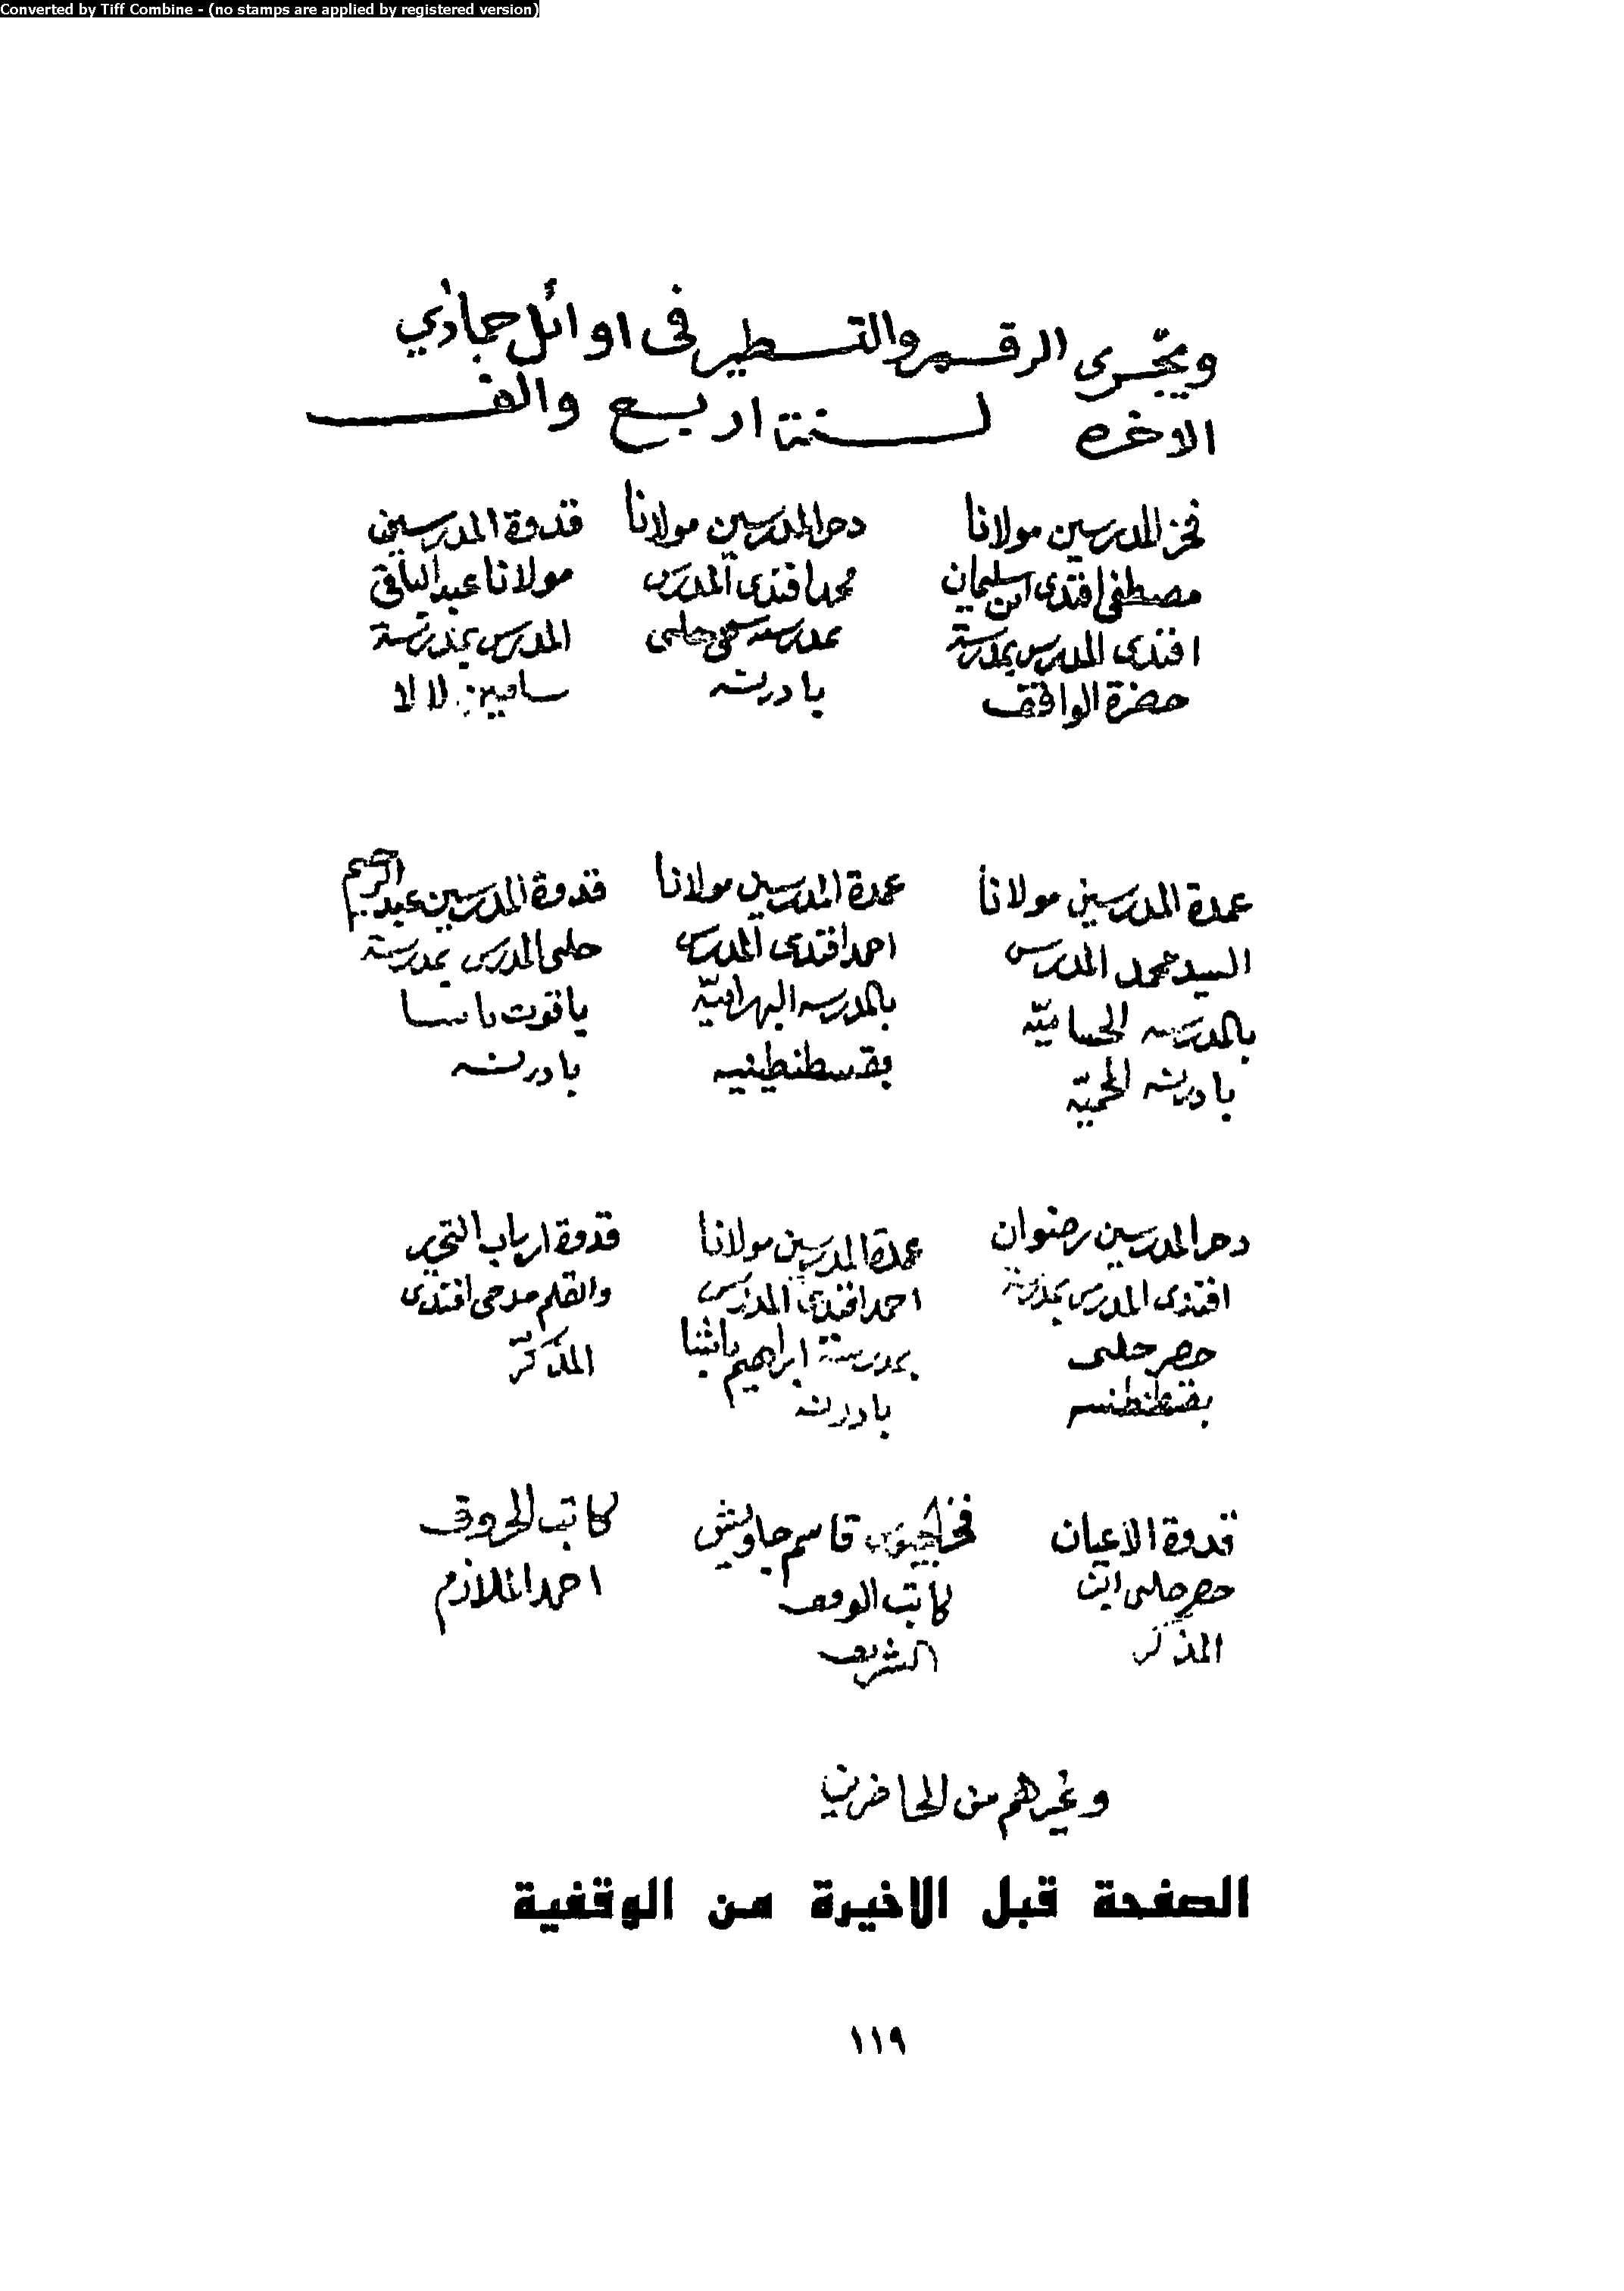 Converted by Tiff Combine - (no stamps are applied by registered version)
ويجرى الرقم والتسطير فى اوائل جمادي
الاخره لسنة اربع والف
فخر المدرسين مولانا
مصطفى افندى ابن سليمان
افندى المدرس بمدرسة
حضرة الواقف
فخر المدرسين مولانا
محمد افندى المدرس
بمدرسة چلبى
بادرنه
قدوة المدرسين
مولانا عبد الباقى
المدرس بمدرسة
لالا
عمدة المدرسين مولانا
السيد محمد المدرس
بالمدرسه الحساميّه
بادرنه المحميّه
عمدة المدرسين مولانا
احمد افندى المدرس
بالمدرسه البهراميّه
بقسطنطينيه
قدوة المدرسين عبد الكريم
چلبى المدرس بمدرسة
ياقوت پاشا
بادرنه
فخر المدرسين رضوان
افندى المدرس بمدرسة
جعفر چلبى
بقسطنطنيه
عمدة المدرسين مولانا
احمد افندى المدرس
بمدرسة ابراهيم پاشا
بادرنه
قدوة ارباب التحرير
والقلم مدحى افندى
المذكّر
قدوة الاعيان
جعفر چلبى ابن
المذكر
فخر قاسم چاويش
كاتب الوقف
الشريف
كاتب الحروف
احمد الملازم
وغيرهم من الحاضرين
الصفحة قبل الاخيرة من الوقفية
١١٩